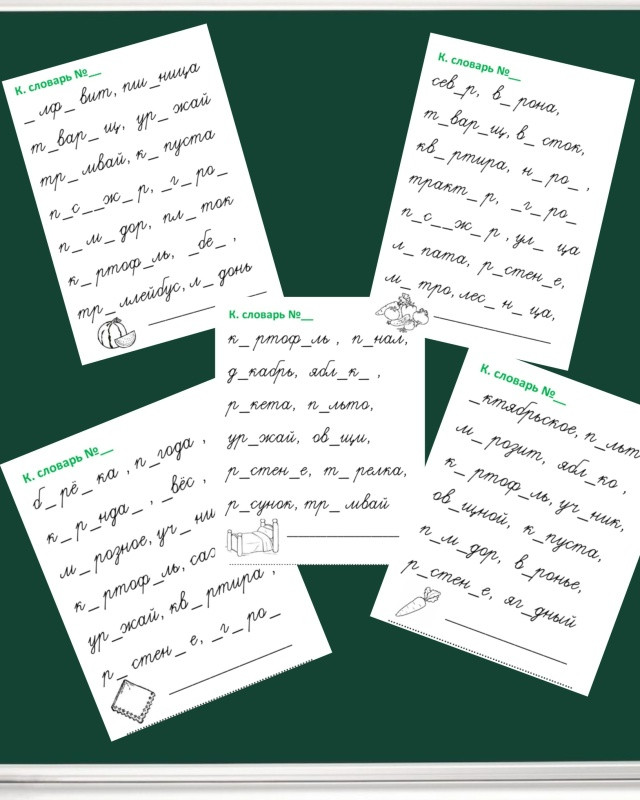 К. словарь №__
_ лф_ вит, пш_ница
т_вар_ щ, ур_ жай
тр_ мвай, к_ пуста
п_с__ж_ р, _г_ро_
п_м_ дор, пл_ ток
к_ ртоф_ль, _бе_ ,
тр_ ллейбус, л_ донь
К. словарь №__
сев_р, в_ рона,
т_вар_щ, в_ сток,
кв_ ртира, н_ ро_ ,
тракт_ р, _г_ро_
п_с__ж_р , ул_ ца
л_ пата, р_стен_е,
м_ тро, лес_ н_ ца,
К. словарь №__
к_ ртоф_ль , п_нал,
д_кабрь, ябл_к_ ,
р_кета, п_льто,
ур_жай, ов_щи,
р_стен_е, т_ релка,
р_сунок, тр_ мвай
К. словарь №__
б_ рё_ ка , п_года ,
к_ р_нда_ , _вёс ,
м_ розное, уч_ ни
к_ ртоф_ль, сах
ур_жай, кв_ ртира ,
р_ стен_ е, _г_ро_
К. словарь №__
_ктябрьское, п_льт
м_ розит, ябл_ко ,
к_ ртоф_ль, уч_ник,
ов_щной, к_пуста,
п_м_дор, в_ронье,
р_стен_е, яг_дный